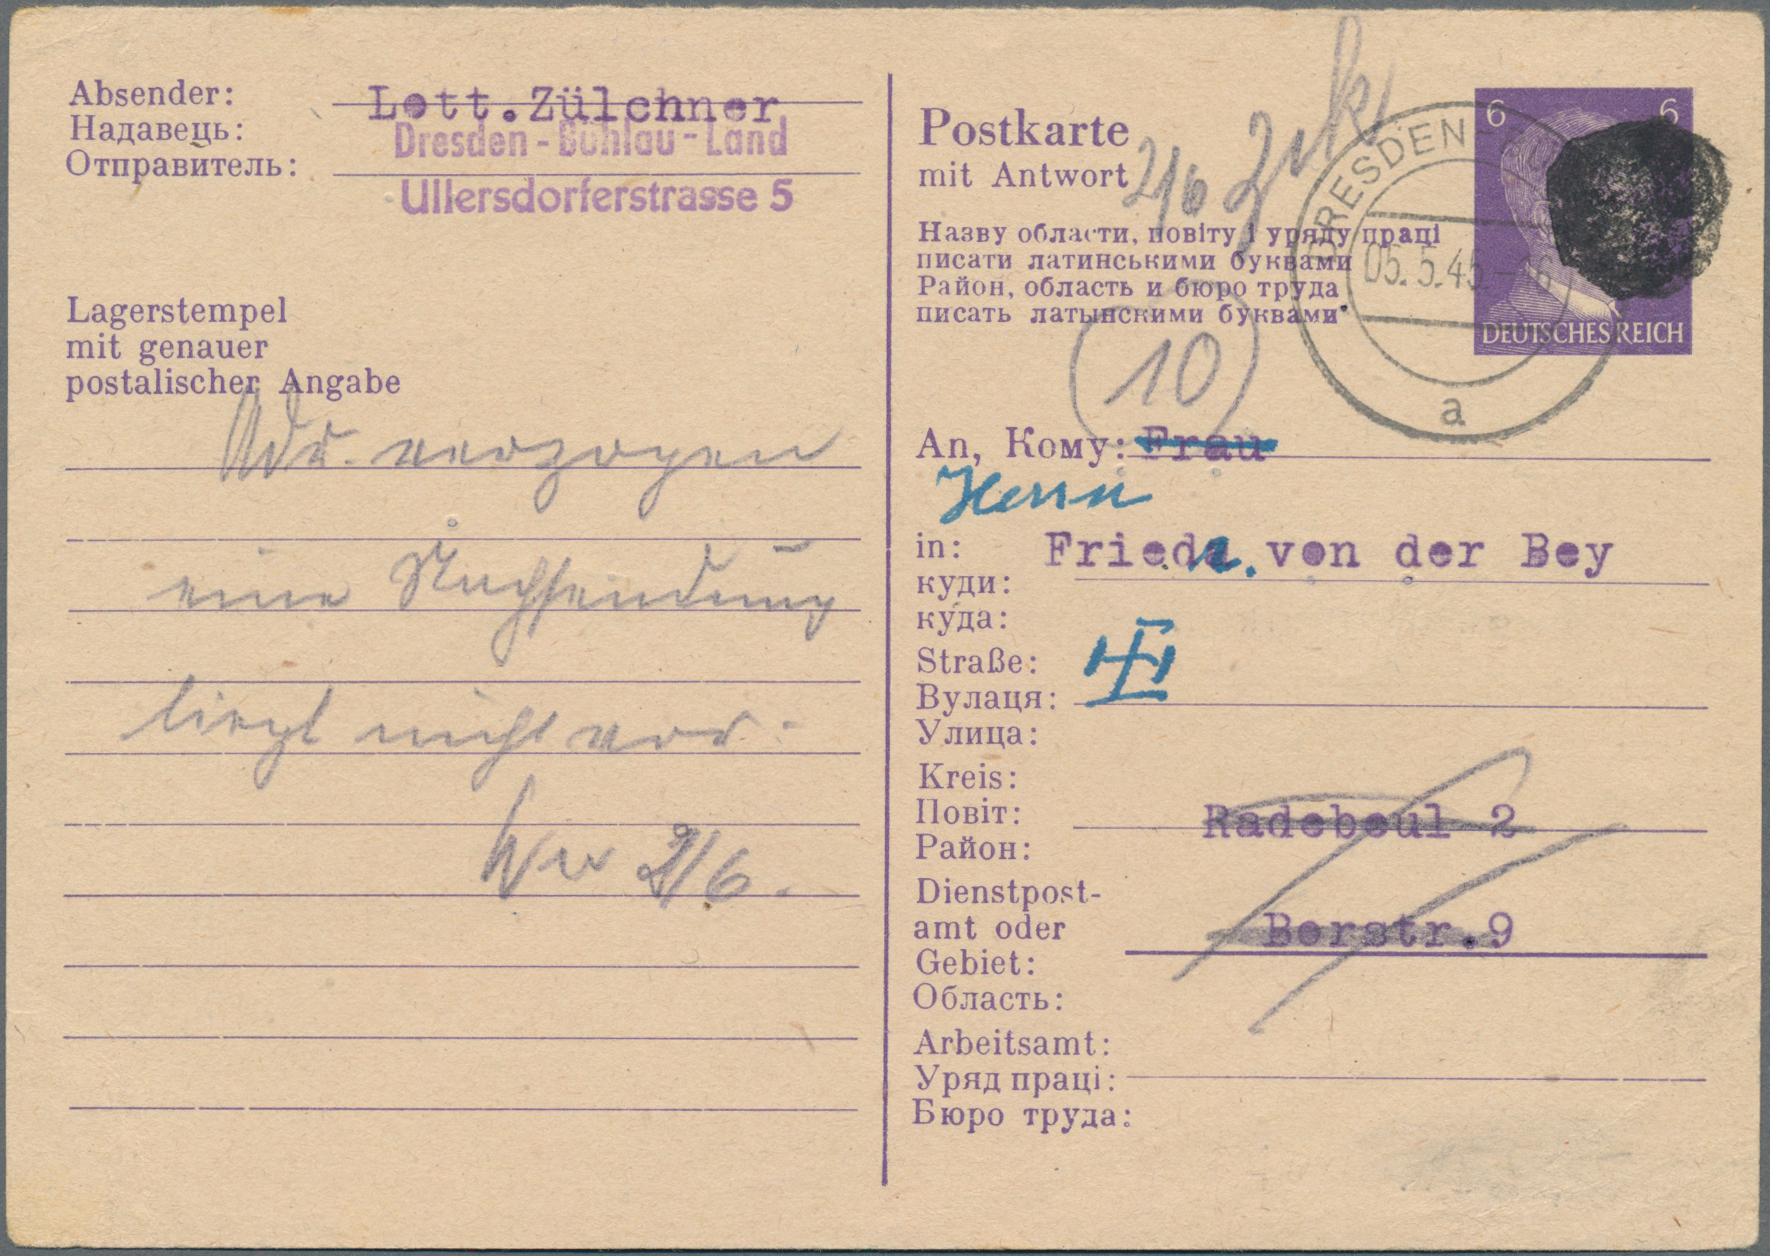 Absender:
Надавець:
Отправитель:
Lott.Zülchner
Dresden-Bühlau-Land
Ullersdorferstrasse 5
Lagerstempel
mit genauer
postalischer Angabe
Adr. verzogen
eine Nachsendung
liegt nicht vor.
2/6.
Postkarte
mit Antwort
2/6 Zurk
Назву области, повіту і уряду праці
писати латинськими буквами
Район, область и бюро труда
писать латынскими буквами
10
6 6
DEUTSCHES REICH
DRESDEN
05.5.45.
a
An, Кому: Frau
Herrn
in: Frieda. von der Bey
куди:
куда:
Straße:
Вулаця:
Улица:
Kreis:
Повіт: Radebeul 2
Район:
Dienstpost-
amt oder Borstr.9
Gebiet:
Область:
Arbeitsamt:
Уряд праці:
Бюро труда: